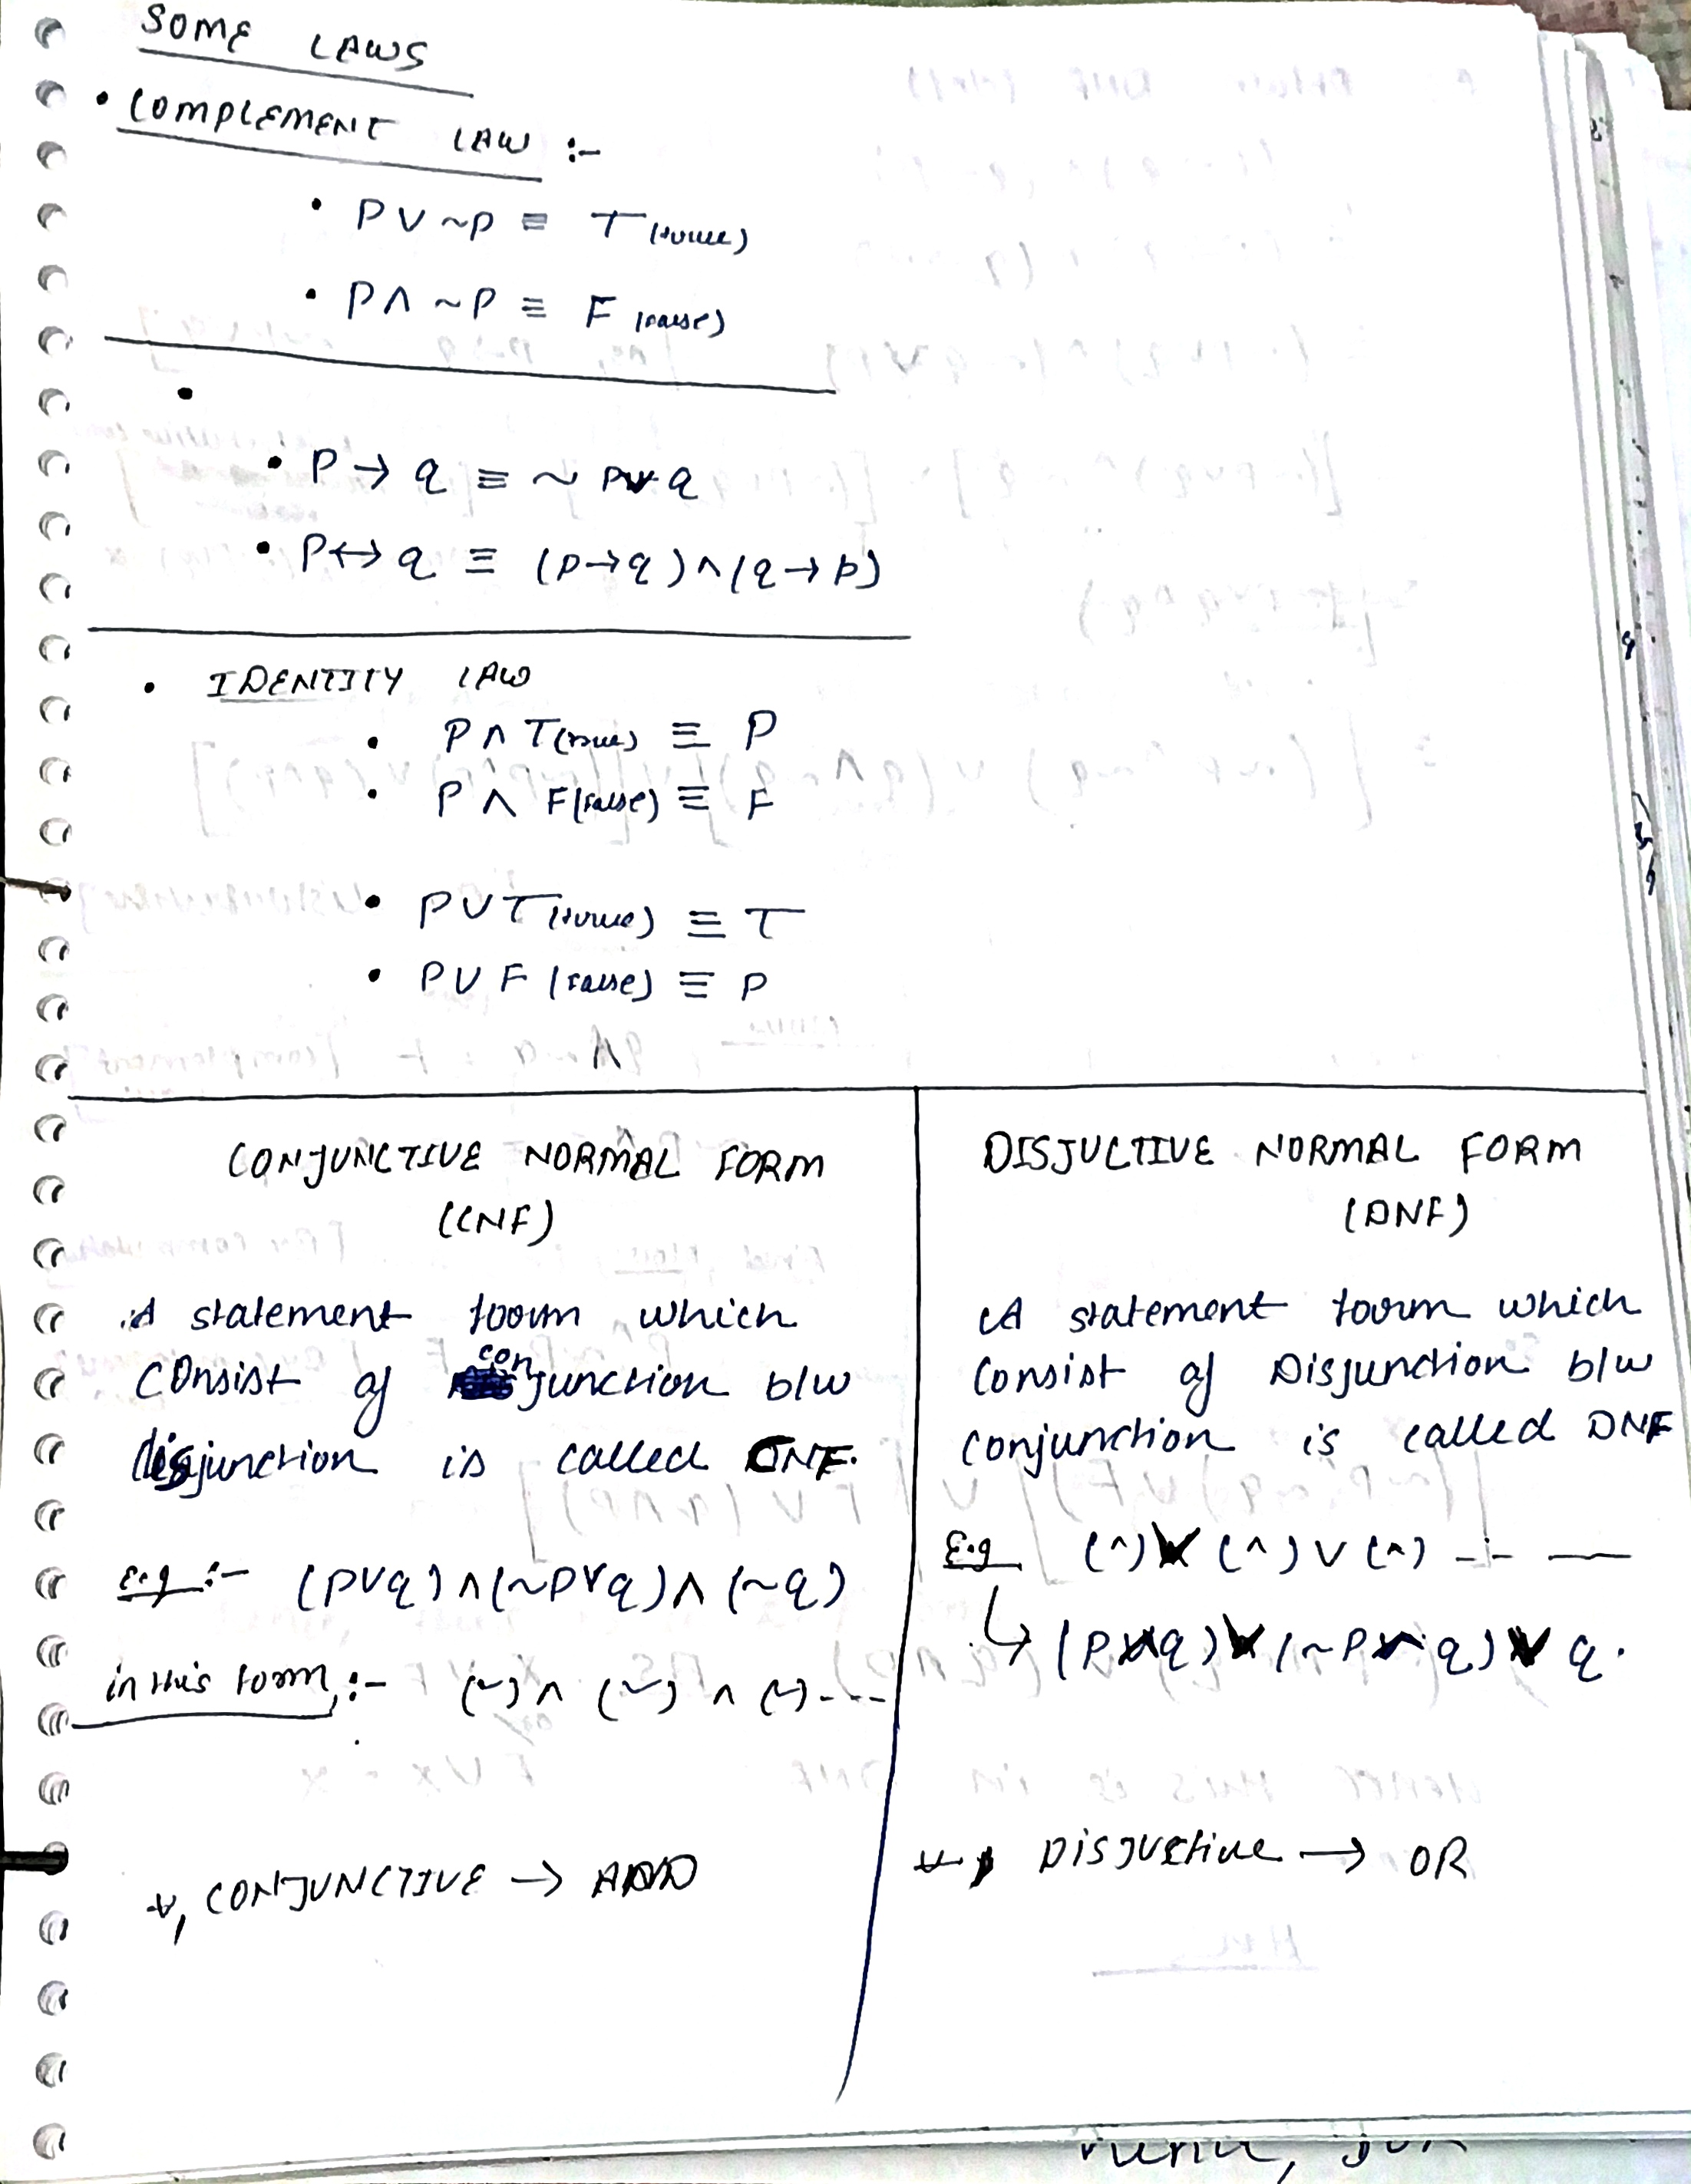 SOME LAWS
• COMPLEMENT LAW :-
• P ∨ ~P ≡ T (true)
• P ∧ ~P ≡ F (false)
•
• P → q ≡ ~ P ∨ q
• P ↔ q ≡ (p → q) ∧ (q → p)
• IDENTITY LAW
• P ∧ T(true) ≡ P
• P ∧ F(false) ≡ F
• P ∪ T (true) ≡ T
• P ∪ F (false) ≡ P
CONJUNCTIVE NORMAL FORM
(CNF)
A statement form which
consist of conjunction b/w
disjunction is called CNF.
e.g :- (p∨q) ∧ (~p∨q) ∧ (~q)
in this form, :- (∨) ∧ (∨) ∧ (∨) ----
*, CONJUNCTIVE → AND
DISJUCTIVE NORMAL FORM
(DNF)
A statement form which
consist of Disjunction b/w
conjunction is called DNF
E.g (∧) ∨ (∧) ∨ (∧) -- —
↳ (P ∧ q) ∨ (~P ∧ q) ∨ q.
* DISJUCTIVE → OR